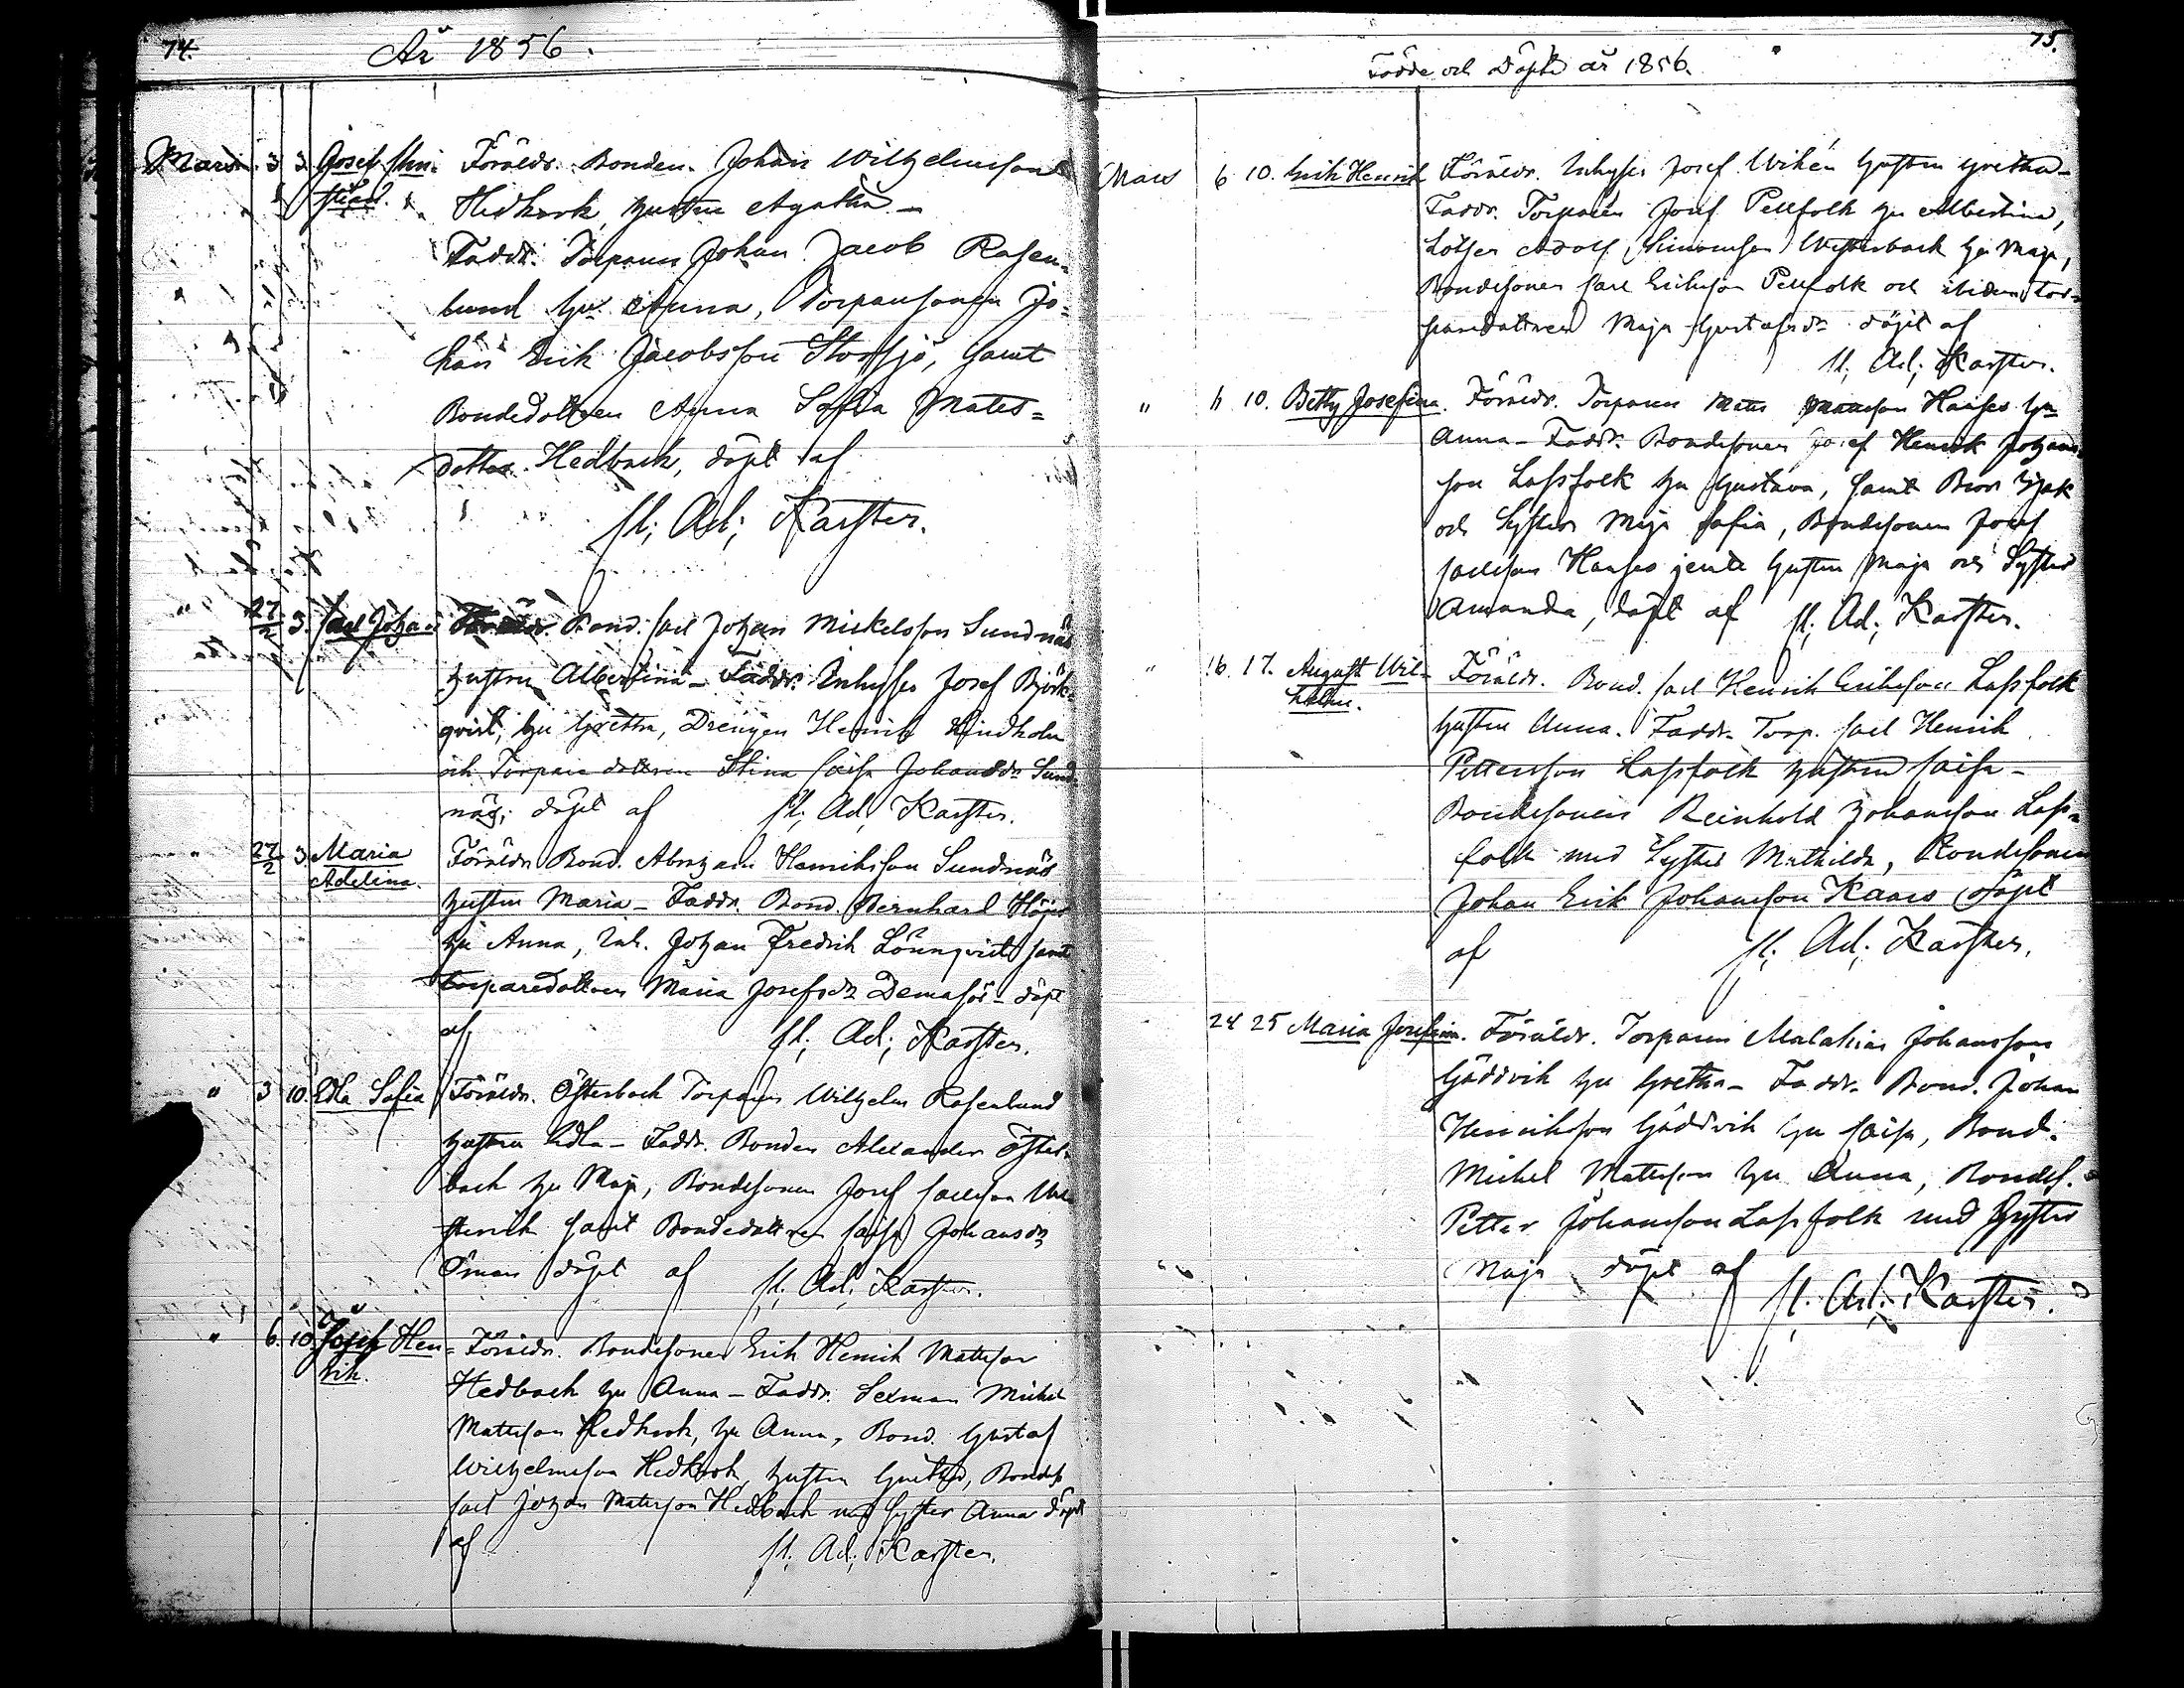 74.
År 1856.
Mars. 3 3. Josef Chri- Föräldr. Bonden Johan Wilhelmsson
stian. Hedkrok, hustru Agatha –
Faddr. Torparen Johan Jacob Rosen-
lund hu Anna, Torparsonen Jo-
han Erik Jacobsson Storsjö, samt
Bondedottren Anna Sofia Mats-
dotter Hedback, döpt af
Ad; Karsten.
" 27/2 3. Carl Johan Föräldr. Bond. Carl Johan Mickelsson Sundnäs
hustru Albertina – Faddr. Inhyses Josef Björk-
qvist, hu Gretha, Drengen Henrik Lindholm
och Torparedottren Stina Caisa Johansdr Sund-
näs; döpt af Ad; Karsten.
" 27/2 3. Maria Föräldr. Bond. Abraham Henriksson Sundnäs
Adelina. hustru Maria – Faddr. Bond. Bernhard
hu Anna, Inh. Johan Fredrik Lönnqvist samt
torparedottren Maria Josefsdr – döpt
af Ad; Karsten.
" 3 10. Edla Sofia Föräldr. Österback Torparen Wilhelm Rosenlund
hustru Edla – Faddr. Bonden Alexander Öster-
back hu Maja, Bondesonen Josef Carlsson
samt Bondedottren Caisa Johansdr
Öman döpt af Ad; Karsten.
" 6. 10. Josef Hen- Föräldr. Bondesonen Erik Henrik Mattsson
rik. Hedback hu Anna – Faddr. Sexman Mickel
Mattsson Hedkrok, hu Anna, Bond. Gustaf
Wilhelmsson Hedkrok, hustru Gretha, Bondes.
Carl Johan Matsson Hedback med syster Anna döpt
af Ad; Karsten.
75.
Födde och Döpte år 1856.
Mars 6 10. Erik Henrik Föräldr. Inhyses Josef Wikén hustru Gretha –
Faddr. Torparen Josef Pellfolk hu Albertina,
Adolf Simonsson Westerback hu Maja,
Bondesonen Carl Eriksson Pellfolk och ibidem tor-
paredottren Maja Gustafsdr döpt af
Ad; Karsten.
" 11 10. Betty Josefina. Föräldr. Torparen Mats Mattsson Haafes hu
Anna – Faddr. Bondesonen Josef Henrik Johans-
son Lassfolk hu Gustava, samt Bror Isak
och Syster Maja Sofia, Bondesonen Josef
Carlsson jemte hustru Maja och Syster
Amanda, döpt af Ad; Karsten.
" 16 17. August Wil- Föräldr. Bond. Carl Henrik Eriksson Lassfolk
helm. hustru Anna. Faddr. Torp. Carl Henrik
Pettersson Lassfolk hustru Caisa –
Bondesonen Reinhold Johansson Lass-
folk med Syster Mathilda, Bondesonen
Johan Erik Johansson Kaars döpt
af Ad; Karsten.
24 25 Maria Josefina. Föräldr. Torparen Malakias Johansson
Gäddvik hu Gretha – Faddr. Bond. Johan
Henriksson Gäddvik hu Caisa, Bond.
Mickel Mattsson hu Anna, Bondes.
Petter Johansson Lassfolk med Syster
Maja döpt af Ad; Karsten.